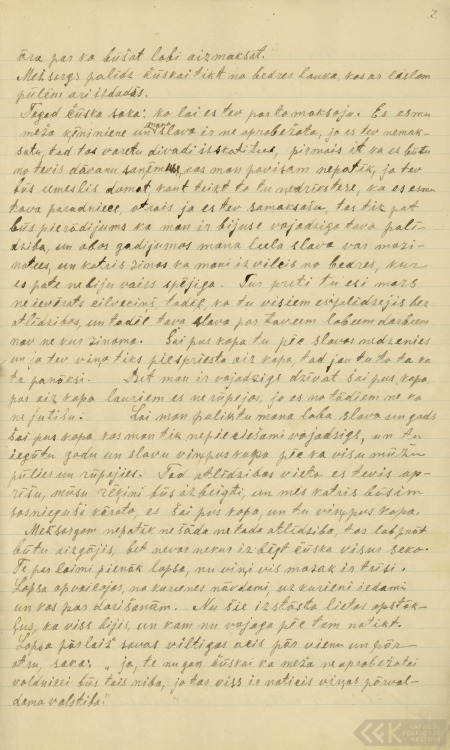 2.
ōra par ko būšat labi aizmaksāt.
Mežsargs palīdz čūskai tikt no bedres laukā, kas ar laslam
pūlēm arī isdadās.
Tagad čūska saka: ko lai es tev par to maksāju. Es esmu
meža ķēniniene un mana slava ir neaprobežota, ja es tev nemak-
sātu, tad tas varētu divadi isskatities, pirmais it ka es būtu
no tevis dāvanu saņēmuse, kas man pavisam nepatīk, ja tev
būs iemeslis domāt kaut teikt ka tu nedrīkstēse, ka es esmu
tava paradniece, otrais ja es tev samaksātu, tas tiz pat
būs pierādijums ka man ir bijuse vajadziga tava palī-
dziba, un abos gadijumos mana liela slava var mazi-
naties, un katris zinās ka mani izvilcis no bedres, kur
es pate nebiju vairs spējīga. Tur preti tu esi mazs
neievērots cilvēciņš, tadēļ, ka tu visiem espalīdzējis bez
atlīdzibas, un tadēļ tava slava par taviem labiem darbiem
nav nekur zinoma. Šai pus kapa tu pēc slavas nedzenies
un ja tev viņa tiks piespriesta aiz kapa, tad jau tu to tā kā
tā panāksi. Bet man ir vajadzigs dzīvot šai pus kapa,
par aiz kapa lauriem es nerūpējos, jo es no tādiem ne ka
nejutišu. Lai man paliktu mana laba slava un gods
šai pus kapa kas man tik nepieciešami vajadzīgs, un tu
iegūtu godu un slavu viņpus kapa pēc ka visu mūžu
pūlies un rūpējies. Tad atlīdzibas vieta es tevis ap-
rīšu, mūsu rēķini būs izbeigti, un mēs katris būsim
sasnieguši kāroto, es šai pus kapa, un tu viņpus kapa.
Mežsargam nepatīk ne šāda ne tada atlīdziba, tas labprāt
būtu aizgājis, bet nevar nekur izbēgt čūska visur seko.
Te par laimi pienāk lapsa, nu viņi vis mazāk ir trīsi.
Lapsa apvaicājas, no kurienes nāvdami, uz kurieni iedami
un kas par darīšanām. Nu šie izstāsta lietas apstāk-
ļus, ka viss bijis, un kam nu vajaga pēc tam notikt.
Lapsa pārlaiž savas viltigas acis pār vienu un pār
otru, saka: "ja, te nu gan čūskai ka meža neaprobežotai
valdnieci būs taisniba, jo tas viss ir noticis viņas pārval-
damā valstībā."
LFK